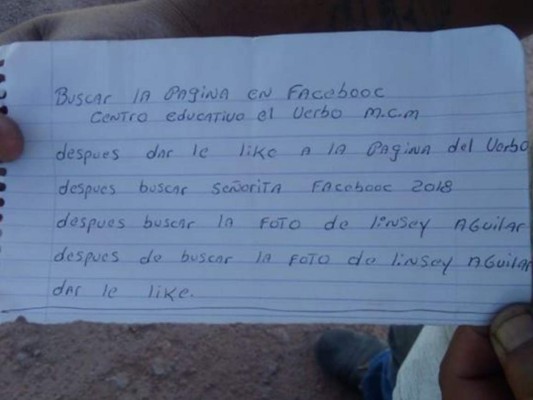 Buscar la Pagina en Facebooc
Centro educativo el Verbo M.C.M
despues dar le like a la Pagina del Verbo
despues buscar Señorita Facebooc 2018
despues buscar la Foto de linsey Aguilar
despues de buscar la Foto de linsey Aguilar
dar le like.